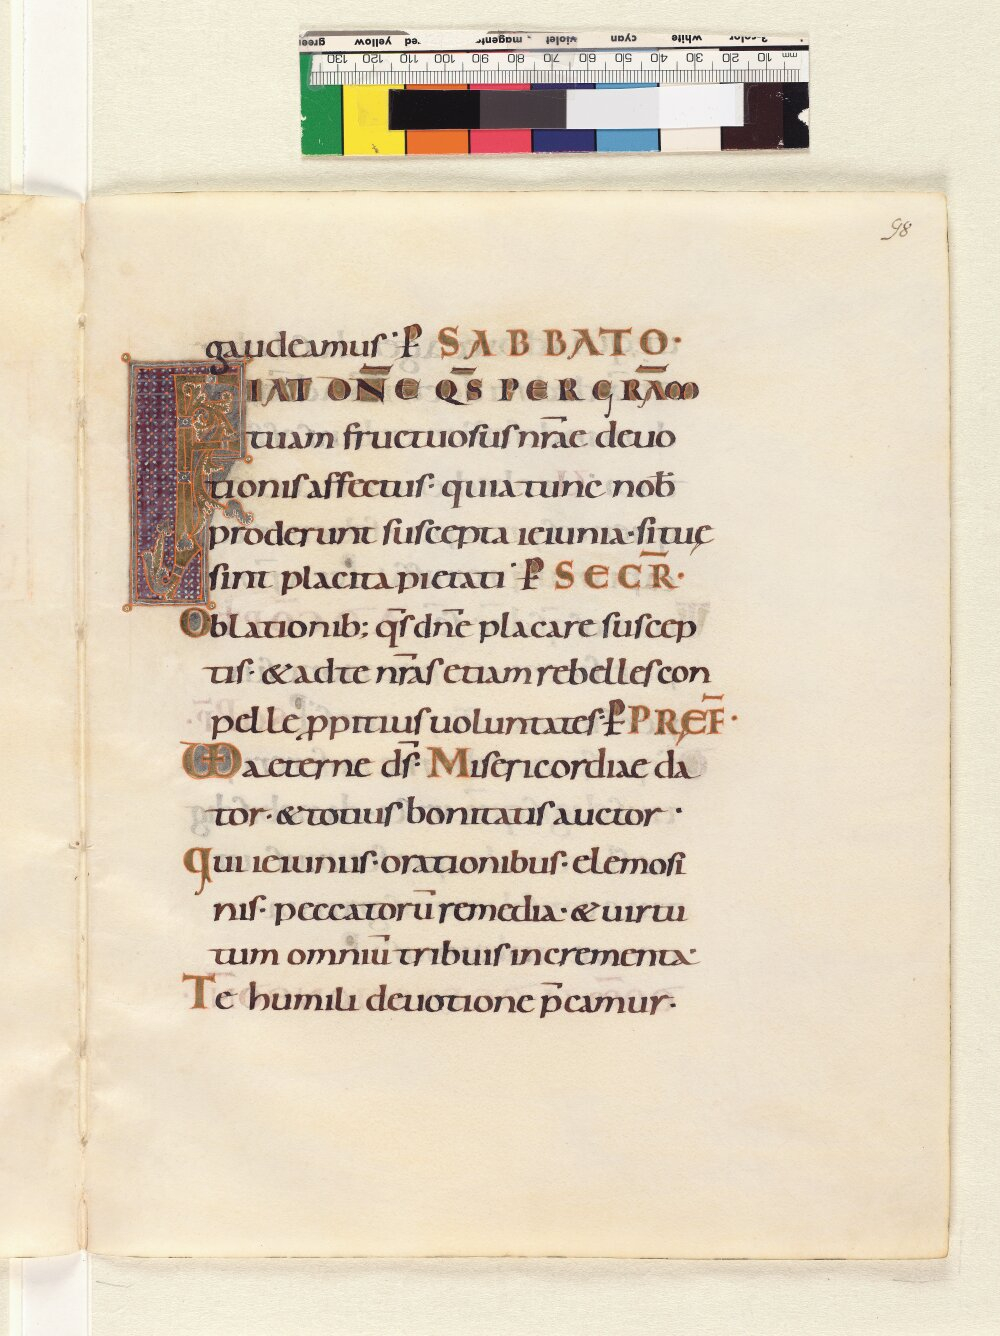 green yellow red magenta violet cyan white 3-color
130 120 110 100 90 80 70 60 50 40 30 20 10 mm
98
gaudeamus· P̄ SABBATO·
FIAT DN̄E QS̄ PER GRĀM
tuam fructuosus nr̄ae deuo
tionis affectus· quia tunc nob̄
proderunt suscepta ieiunia· si tuę
sint placita pietati· P̄ SECR̄·
Oblationib; qs̄ dn̄e placare suscep
tis· & ad te nr̄as etiam rebelles con
pelle ꝓpitius uoluntates· P̄ PRĘF̄·
VD aeterne ds̄· Misericordiae da
tor· & totius bonitatis auctor·
qui ieiuniis· orationibus· elemosi
nis· peccatorū remedia· & uirtu
tum omniū tribuis incrementa·
Te humili deuotione p̄camur·